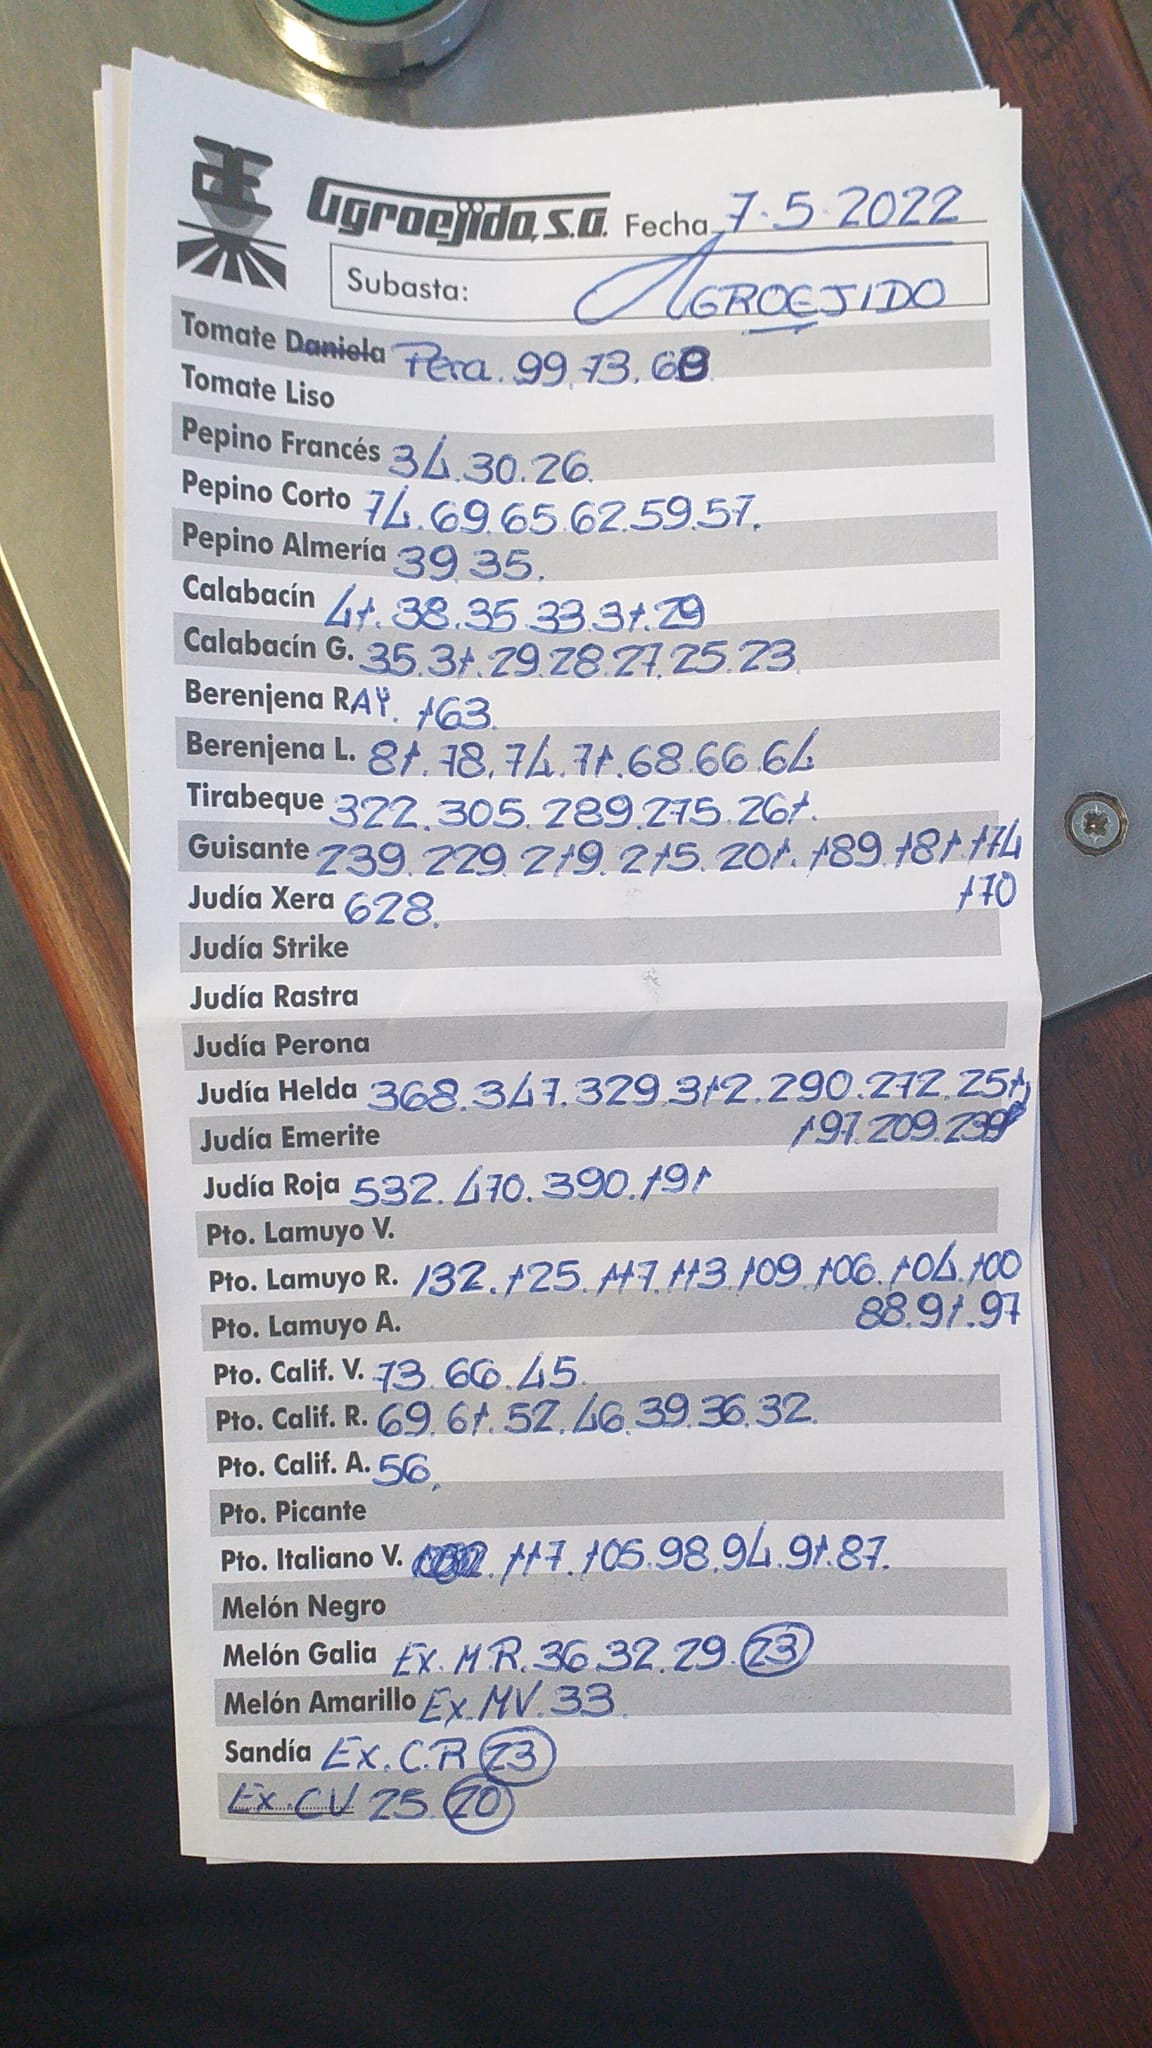 Agroejido, S.A. Fecha 7.5.2022
Subasta: AGROEJIDO
Tomate Daniela Pera. 99.73.60
Tomate Liso
Pepino Francés 34.30.26.
Pepino Corto 74.69.65.62.59.57.
Pepino Almería 39.35.
Calabacín 41.38.35.33.31.29
Calabacín G. 35.31.29.28.27.25.23.
Berenjena RAY. 163.
Berenjena L. 81.78.74.71.68.66.64
Tirabeque 322.305.289.275.261.
Guisante 239.229.219.215.201.189.181.174
170
Judía Xera 628.
Judía Strike
Judía Rastra
Judía Perona
Judía Helda 368.347.329.312.290.272.251,
Judía Emerite 197.209.239
Judía Roja 532.470.390.191
Pto. Lamuyo V.
Pto. Lamuyo R. 132.125.117.113.109.106.104.100
Pto. Lamuyo A. 88.91.97
Pto. Calif. V. 73.66.45.
Pto. Calif. R. 69.61.52.46.39.36.32.
Pto. Calif. A. 56.
Pto. Picante
Pto. Italiano V. 117.105.98.94.91.87.
Melón Negro
Melón Galia Ex.MR.36.32.29.23
Melón Amarillo Ex.MV.33.
Sandía Ex.C.R 23
Ex.CV 25.20